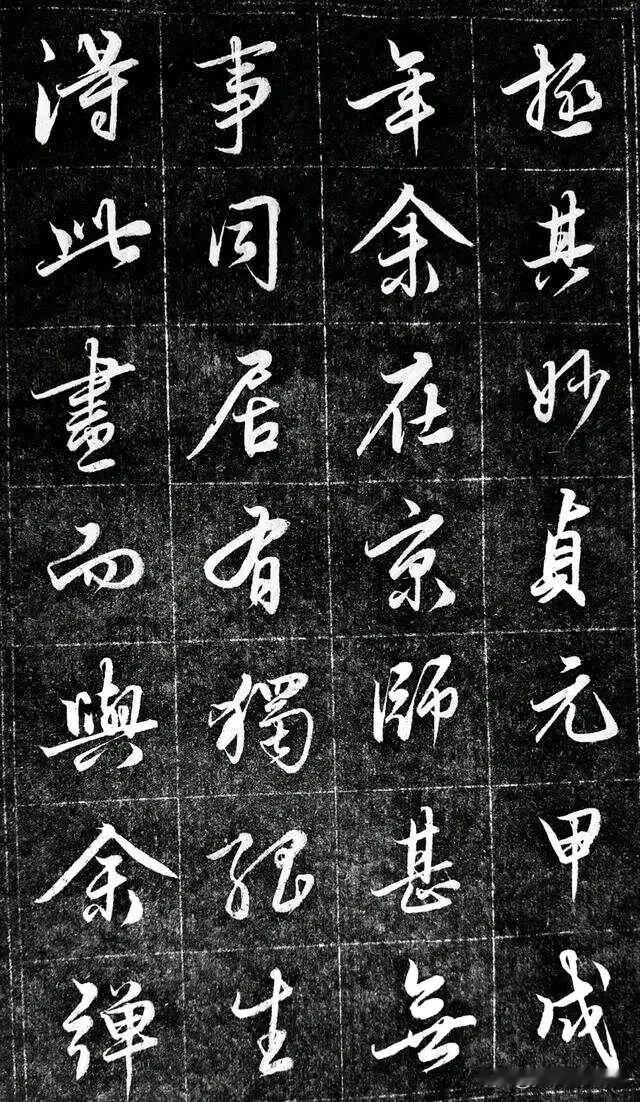 極其妙貞元甲戌
年余在京師甚無
事同居有獨孤生
得此畫而與余彈